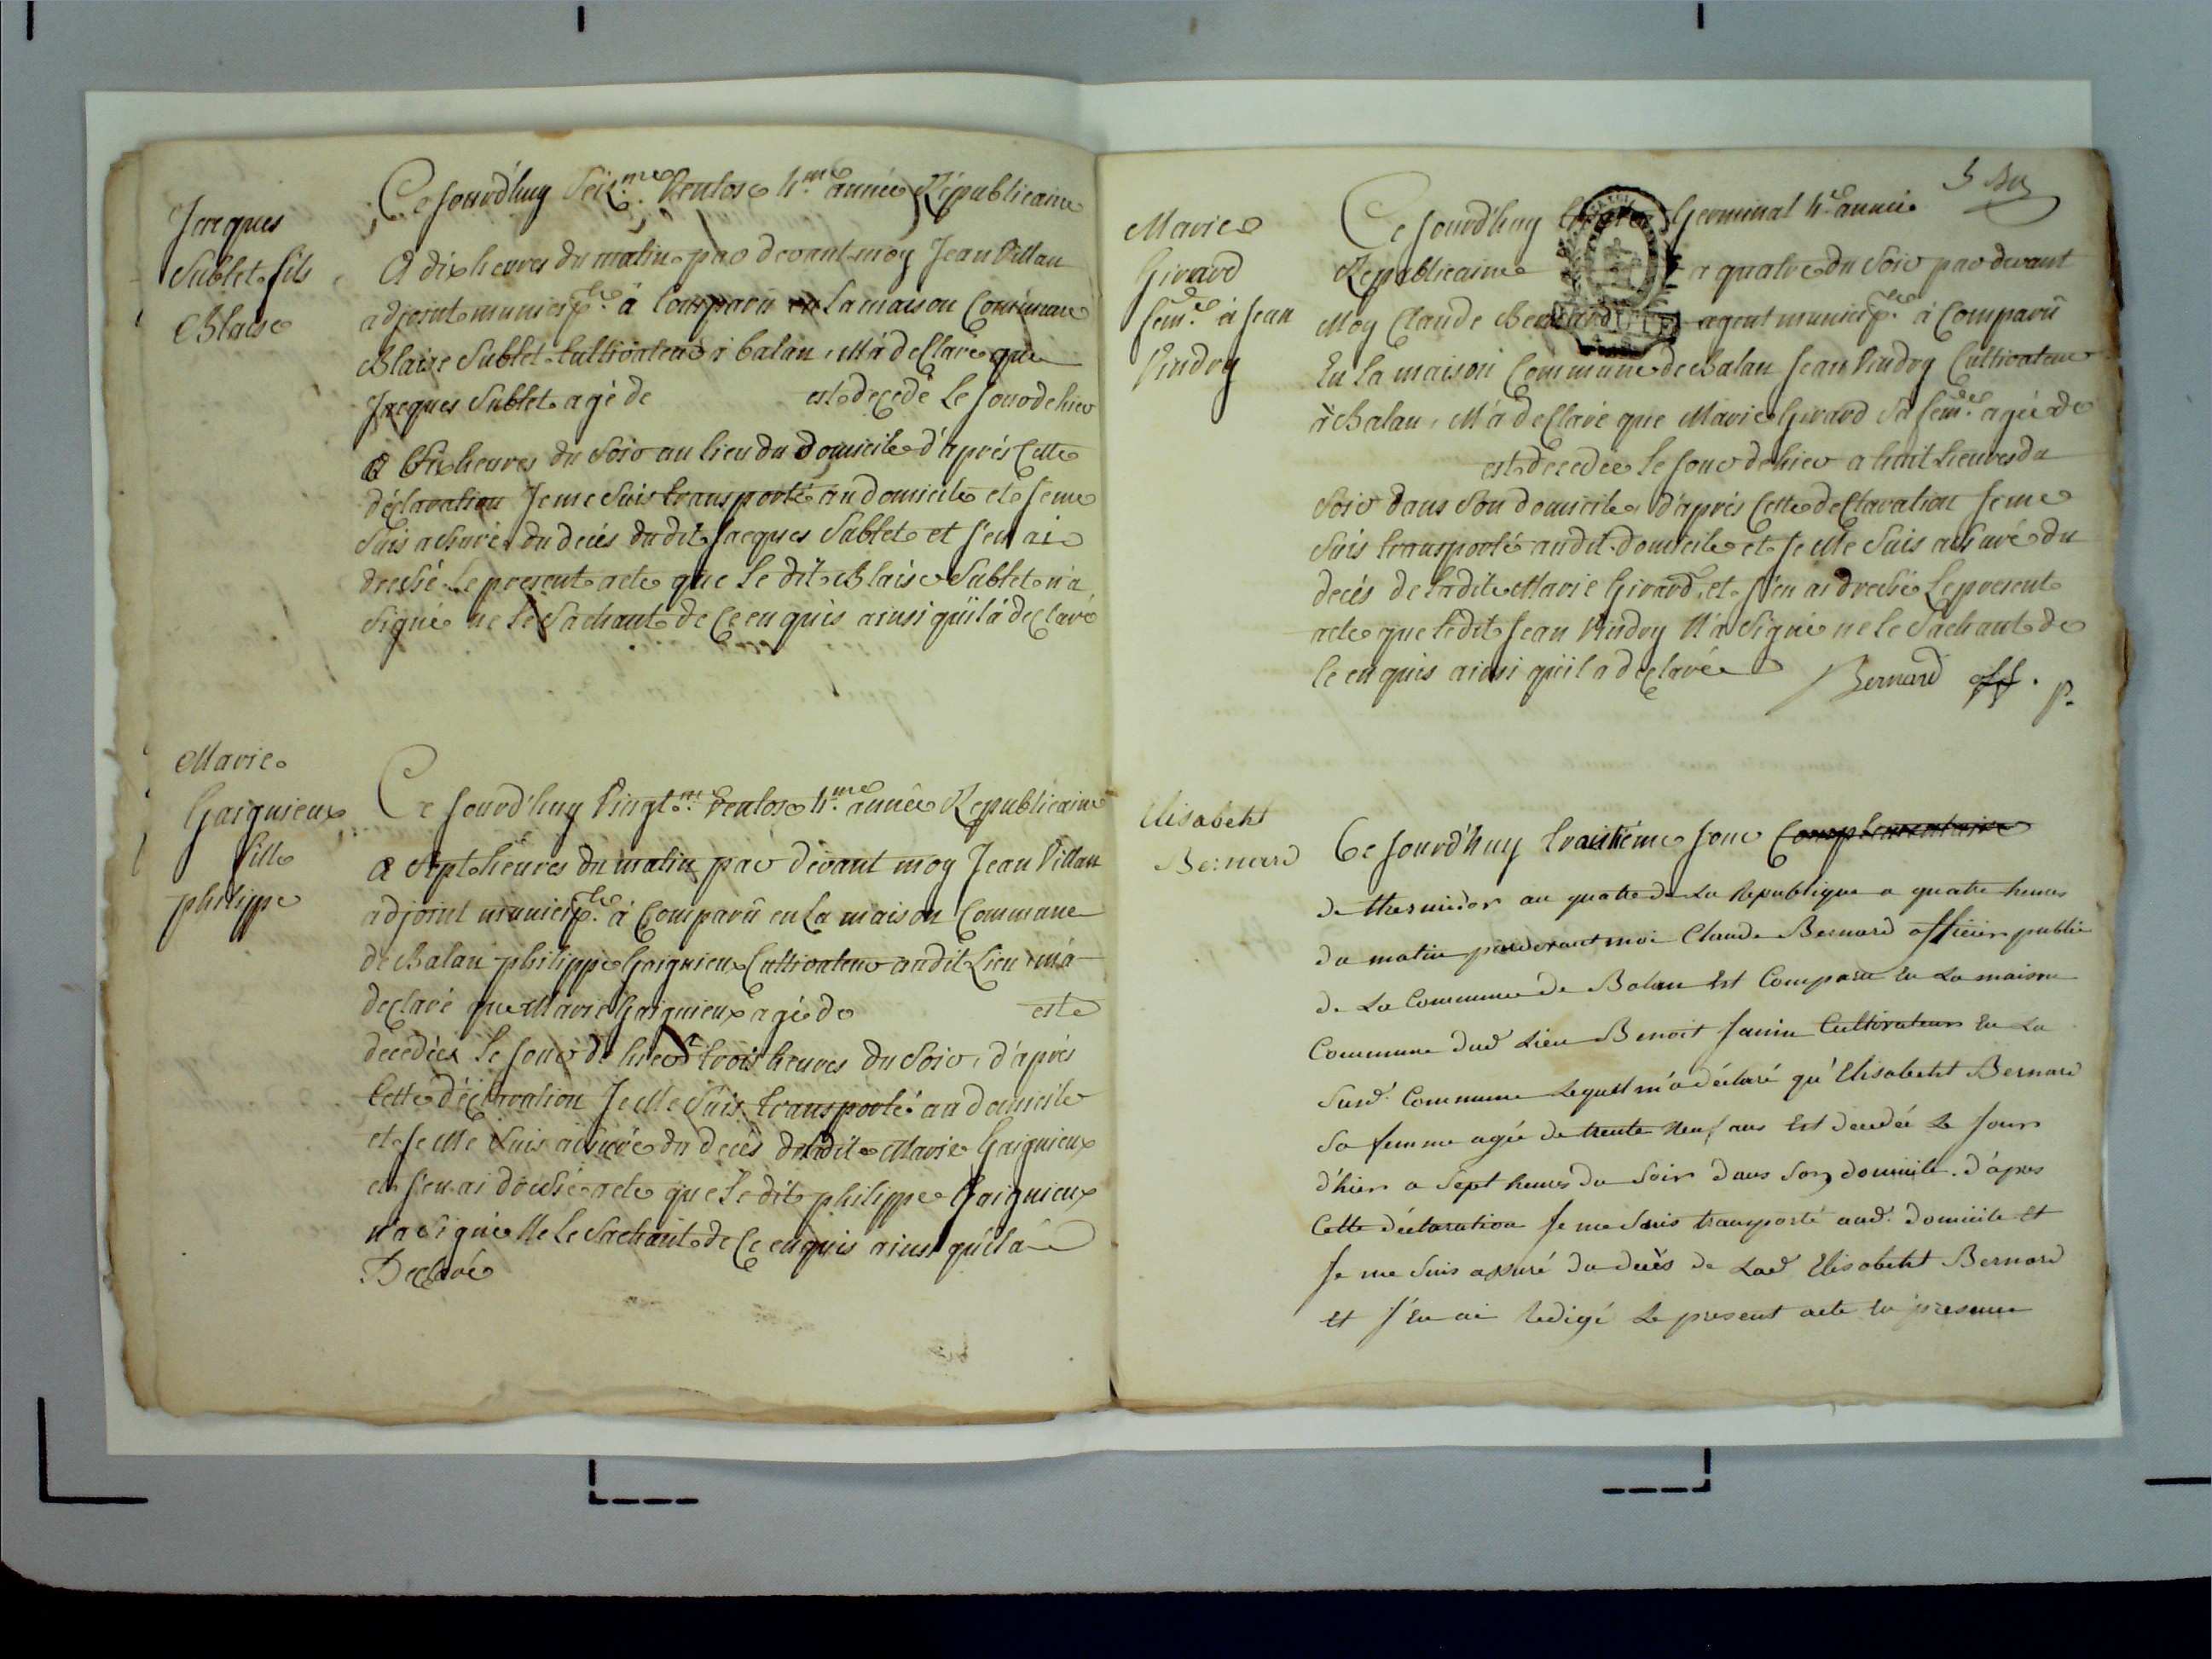 Jacques
Sublet fils
Blaise
Ce jourd'huy Seiz.me Ventose 4.me année Républicaine
A dix heures du matin par devant moy Jean Villan
adjoint municip.le à Comparû en la maison Commune
Blaise Sublet Cultivateur à balan, M'a déClaré que
Jacques Sublet agé de est decedé le jour de hier
a Six heures du Soir au lieu du Domicile d'après Cette
déclaration Je me Suis transporté au domicile et Je me
Suis assuré du decés du dit Jacques Sublet et J'en ai
dressé Le present acte que Le dit Blaise Sublet n'a
Signé ne Le Sachant de Ce enquis ainsi qu'il à déClaré
Marie
Gaignieux
fille
philippe
Ce Jourd'huy Vingt.me Ventose 4.me année Republicaine
a Sept heures du matin par devant moy Jean Villan
adjoint municip.le à Comparû en La maison Commune
de Balan philippe Gaignieux Cultivateur audit Lieu m'à
declaré que Marie Gaignieux agée de est
decedée Le jour de hier à trois heures du Soir, d'après
Cette déclaration Je Me Suis transporté au domicile
et Je Me Suis assuré du decès de ladite Marie Gaignieux
et J'en ai dressé acte que Le dit philippe Gaignieux
n'a Signé Ne Le Sachant de Ce enquis ainsi qu'il a
Declaré
5 Bn
Marie
Girard
fem.e à Jean
Pindry
Ce Jourd'huy Germinal 4.e année
Republicaine a quatre du Soir par devant
Moy Claude Bernard agent municip.le à Comparû
En La maison Commune de Balan Jean Pindry Cultivateur
à Balan, M'à deClaré que Marie Girard Sa fem.e agée de
est decedée le jour de hier a huit heures du
Soir dans Son domicile, d'après Cette deClaration Je me
Suis transporté audit domicile et Je Me Suis assuré du
decés de Ladite Marie Girard, et J'en ai dressé Le present
acte que ledit Jean Pindry N'a Signé ne le Sachant de
Ce enquis ainsi qu'il a declaré Bernard off. p.
Elisabeht
Bernard
Ce Jourd'huy troisième jour Complementaire
de thermidor an quatre de La Republique a quatre heures
du matin pardevant moi Claude Bernard officier public
de La Commune de Balan Est Comparu En La maison
Commune dud Lieu Benoit Janin Cultivateur En La
Susd. Commune Lequel m'a déclaré qu'Elisabeht Bernard
Sa femme agée de trente Neuf ans Est decedée Le Jour
d'hier a Sept heures du Soir dans Son domicile. d'apres
Cette déclaration Je me Suis transporté aud. domicile Et
Je me Suis assuré du decès de Lad Elisabeht Bernard
Et J'En ai Redigé Le present acte En presence